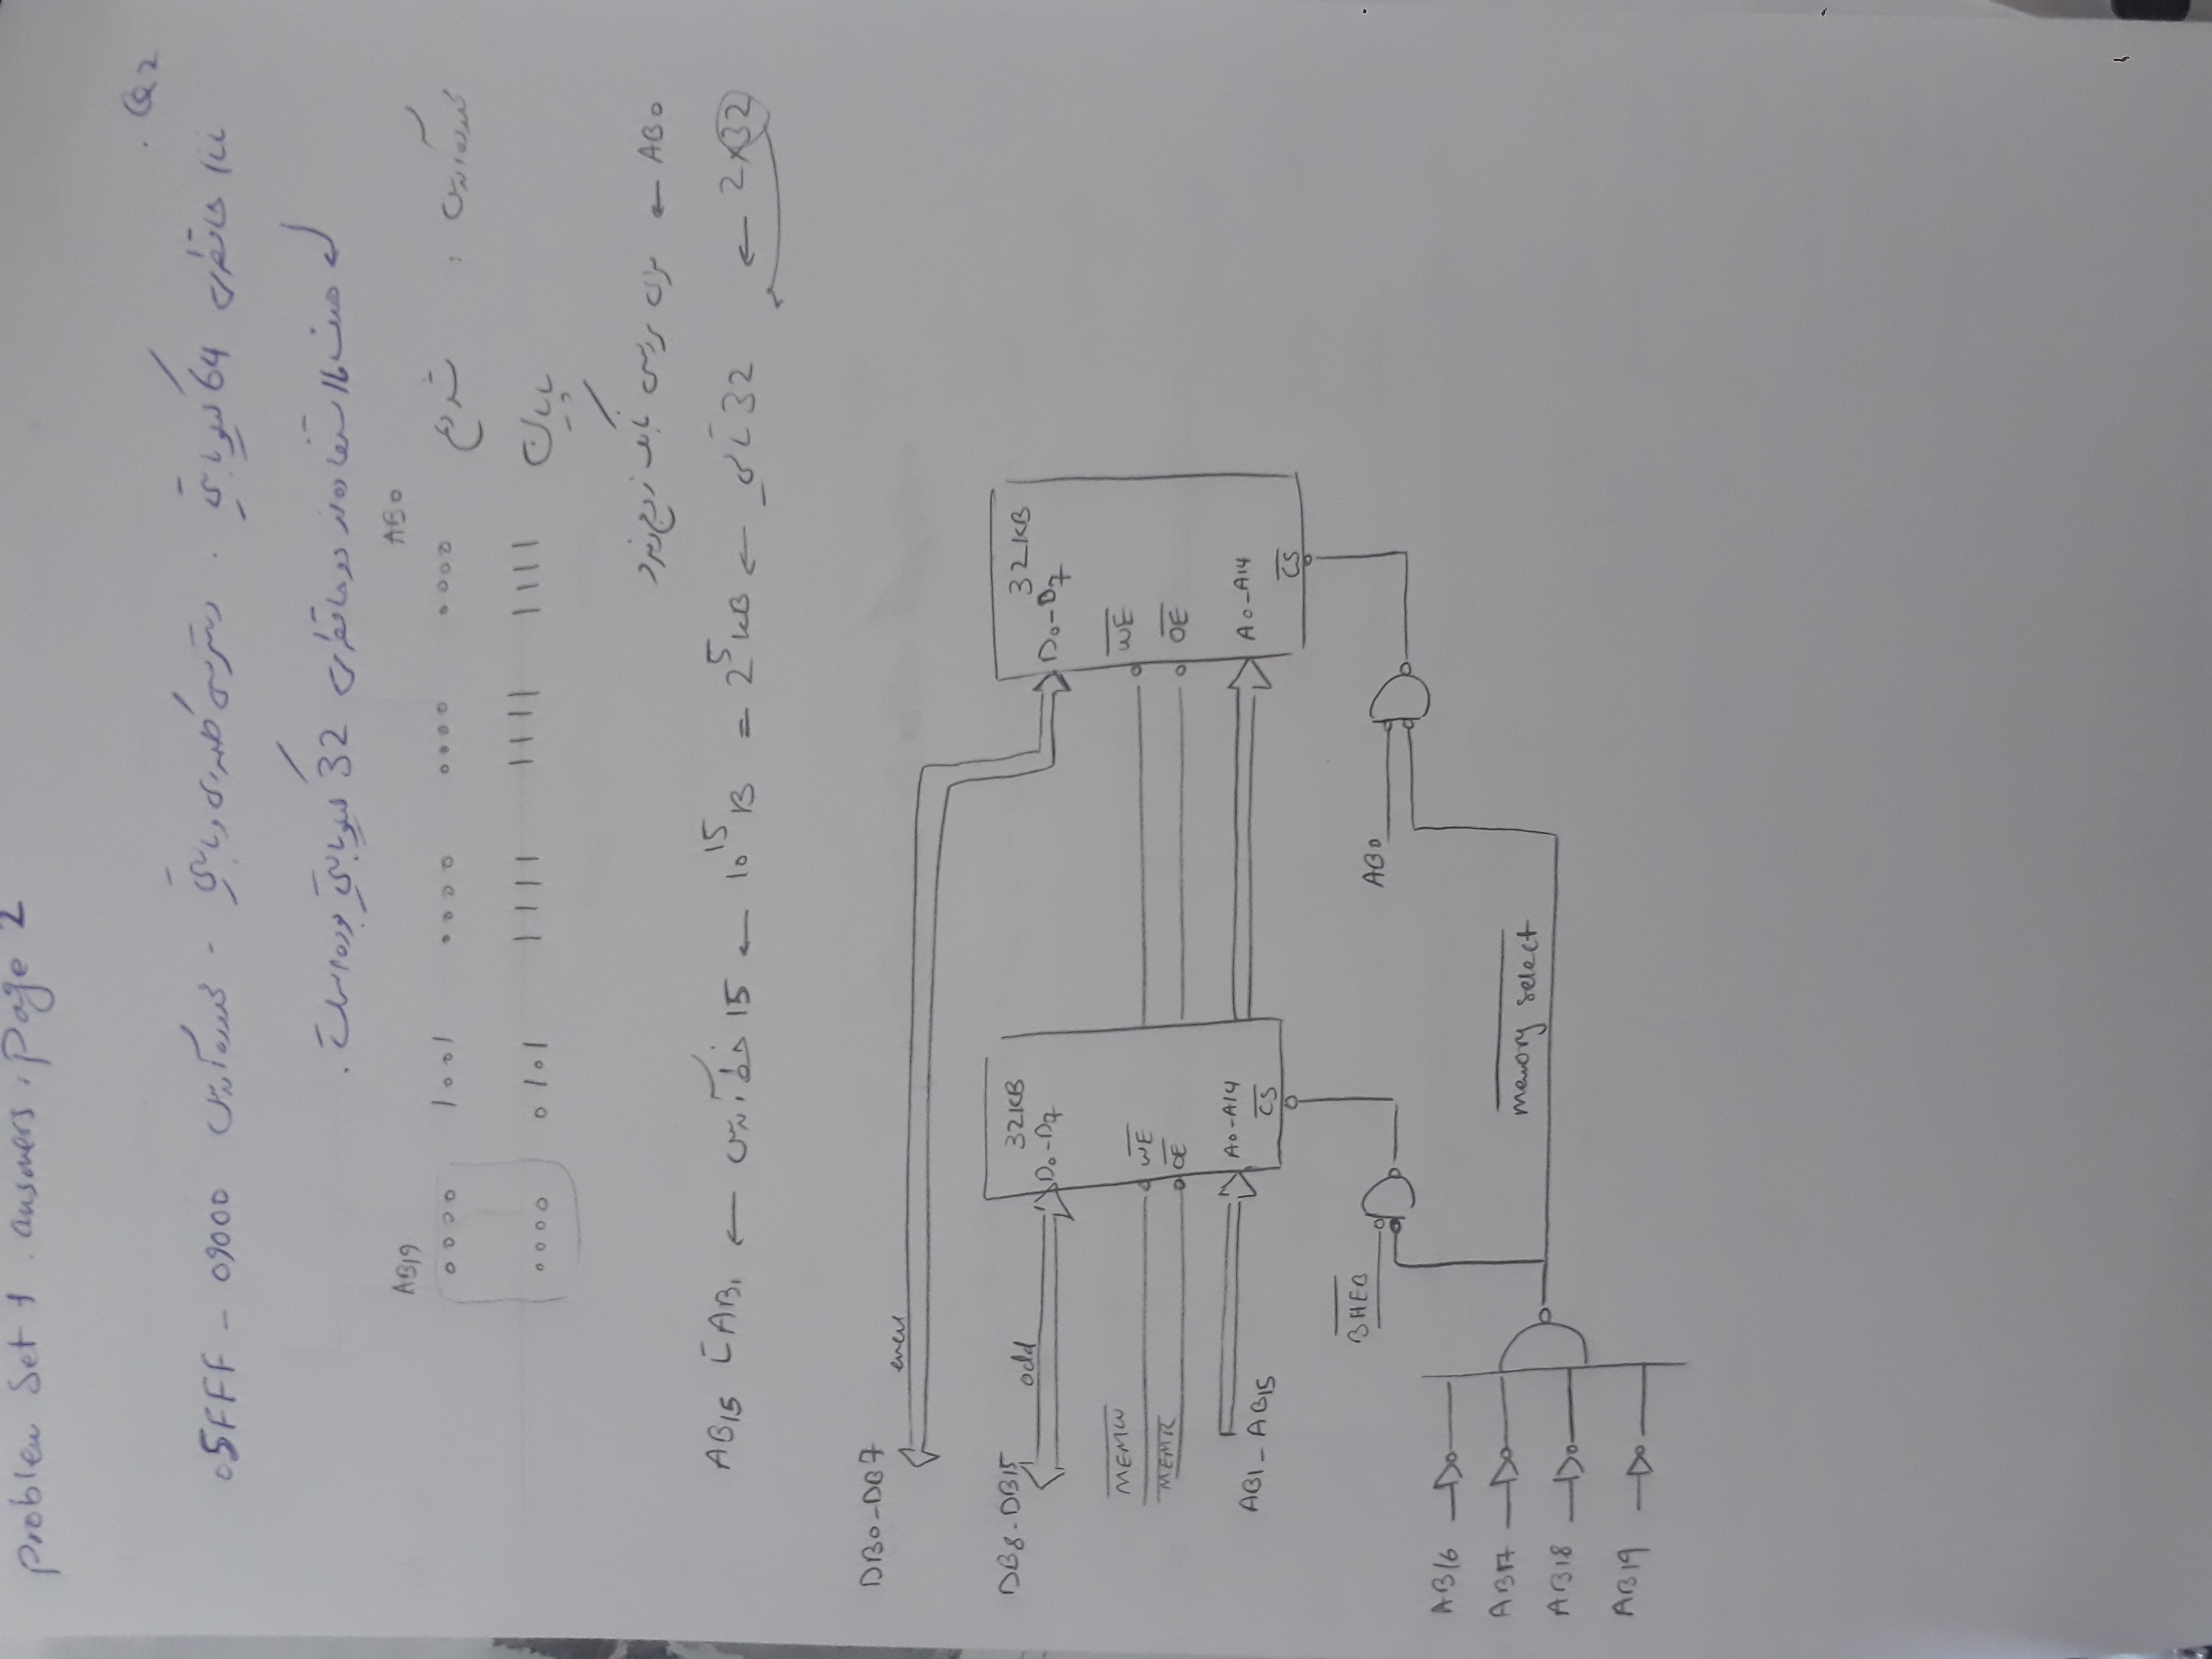 Problem Set 1 . answers . page 2
Q2 .
حافظه‌ی 64 کیلوبایتی . دسترسی کلمه‌ای و بایتی - محدوده آدرس 09000 - 05FFF
استفاده از دو حافظه‌ی 32 کیلوبایتی بوده است .
AB19 AB0
محدوده آدرس : شروع 0000 1001 0000 0000 0000
پایان 0000 0101 1111 1111 1111
AB0 ← برای بررسی بانک زوج و فرد
2×32 ← 32 تایی ← 2^5 KB = 10^15 B ← 15 خط آدرس ← AB1 تا AB15
DB0-DB7
even
DB8-DB15
odd
32KB
D0-D7
32KB
D0-D7
MEMW
WE
WE
MEMR
OE
OE
AB1-AB15
A0-A14
A0-A14
CS
CS
BHEB
AB0
AB16
AB17
memory select
AB18
AB19